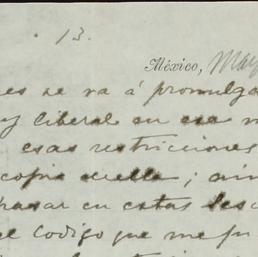 13.
México, May
es se va á promulga
y liberal en esa m
esas restricciones
copia ; ain
pasar en estas
el Codigo que me fu